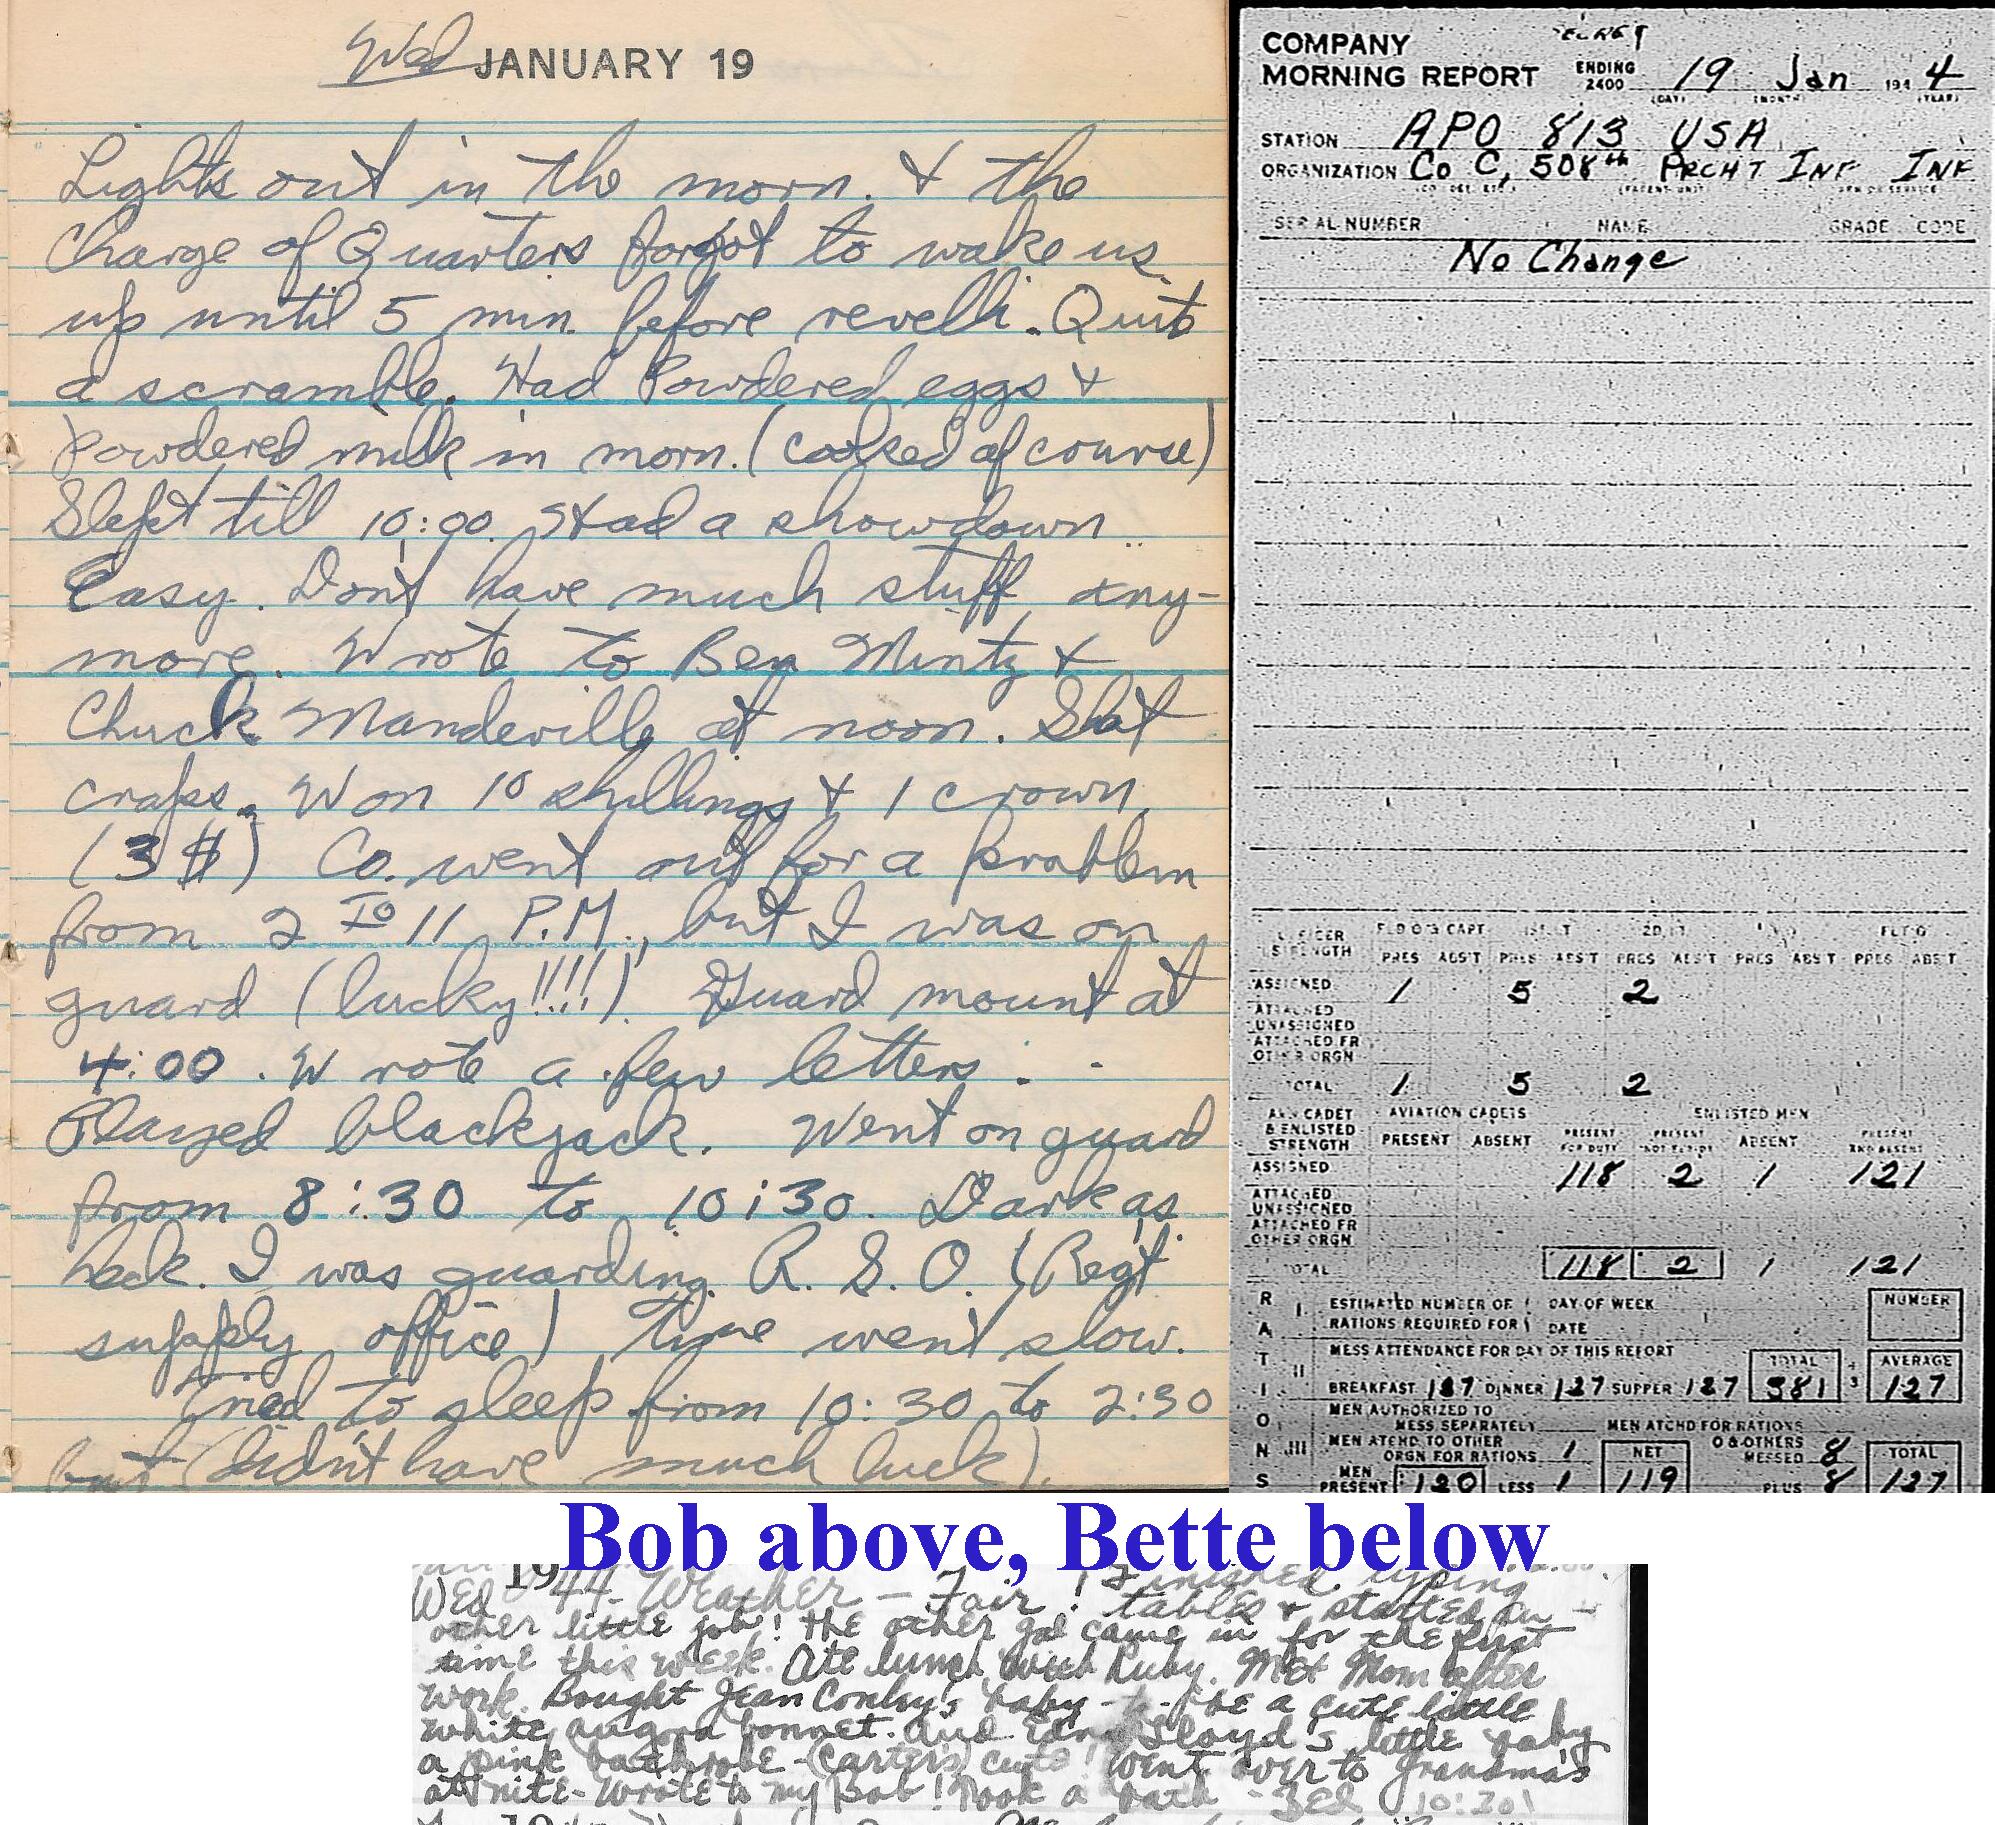 Wed JANUARY 19
Lights out in the morn. & the
Charge of Quarters forgot to wake us
up until 5 min. before revelli. Quite
a scramble. Had Powdered eggs &
Powdered milk in morn. (cooked of course)
Slept till 10:00. Had a showdown
Easy. Don't have much stuff any-
more. Wrote to Ben Mintz &
Chuck Mandeville at noon. Shot
craps. Won 10 shillings & 1 crown
(3 $) Co. went out for a problem
from 2 TO 11 P.M., but I was on
guard (lucky!!!!). Guard mount at
4:00. Wrote a few letters.
Played blackjack. Went on guard
from 8:30 to 10:30. Dark as
heck. I was guarding R. S. O. (Reg't
supply office) Time went slow.
Tried to sleep from 10:30 to 2:30
but (didn't have much luck).
COMPANY
MORNING REPORT ENDING 2400 19 Jan 1944
(DAY) (MONTH) (YEAR)
STATION APO 813 USA
ORGANIZATION Co C, 508th PRCHT INF INF
SERIAL NUMBER NAME GRADE CODE
No Change
OFFICER STRENGTH FLD O & CAPT 1ST LT 2D LT FLT O
PRES ABS'T PRES ABS'T PRES ABS'T PRES ABS'T PRES ABS'T
ASSIGNED 1 5 2
ATTACHED
UNASSIGNED
ATTACHED FR
OTHER ORGN
TOTAL 1 5 2
AVN CADET & ENLISTED STRENGTH AVIATION CADETS ENLISTED MEN
PRESENT ABSENT PRESENT FOR DUTY PRESENT NOT FOR DUTY ABSENT PRESENT AND ABSENT
ASSIGNED 118 2 1 121
ATTACHED
UNASSIGNED
ATTACHED FR
OTHER ORGN
TOTAL 118 2 1 121
RATIONS
I ESTIMATED NUMBER OF RATIONS REQUIRED FOR DAY OF WEEK DATE NUMBER
II MESS ATTENDANCE FOR DAY OF THIS REPORT TOTAL AVERAGE
BREAKFAST 127 DINNER 127 SUPPER 127 381 3 127
MEN AUTHORIZED TO
MESS SEPARATELY MEN ATCHD FOR RATIONS
III MEN ATCHD TO OTHER ORGN FOR RATIONS 1 NET O & OTHERS MESSED 8 TOTAL
MEN PRESENT 120 LESS 1 119 PLUS 8 127
Bob above, Bette below
Wed 1944 Weather - Fair! Finished typing
tables & started an-
other little job! The other gal came in for the first
time this week. Ate lunch with Ruby. Met Mom after
work. Bought Jean Conley's baby-to-be a cute little
white angora bonnet. And Edna Lloyd's little baby
a pink bathrobe - (Carter's) cute! Went over to Grandma's
at nite - Wrote to my Bob! Took a bath - Bed 10:30!